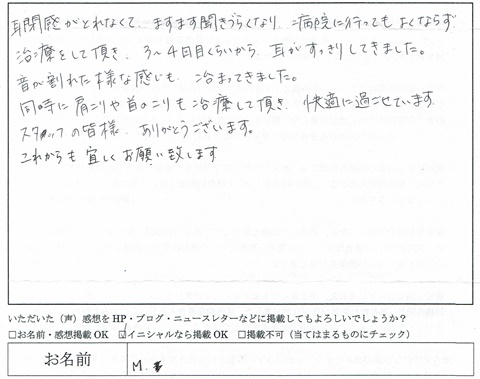 耳閉感がとれなくて、ますます聞きづらくなり、病院に行ってもよくならず
治療をして頂き、3〜4回目くらいから、耳がすっきりしてきました。
音が割れた様な感じも、治まってきました。
同時に肩こりや首のこりも治療して頂き、快適に過ごせています
スタッフの皆様、ありがとうございます。
これからも宜しくお願い致します
いただいた（声）感想をHP・ブログ・ニュースレターなどに掲載してもよろしいでしょうか？
□お名前・感想掲載OK ☑イニシャルなら掲載OK □掲載不可（当てはまるものにチェック）
お名前 M.